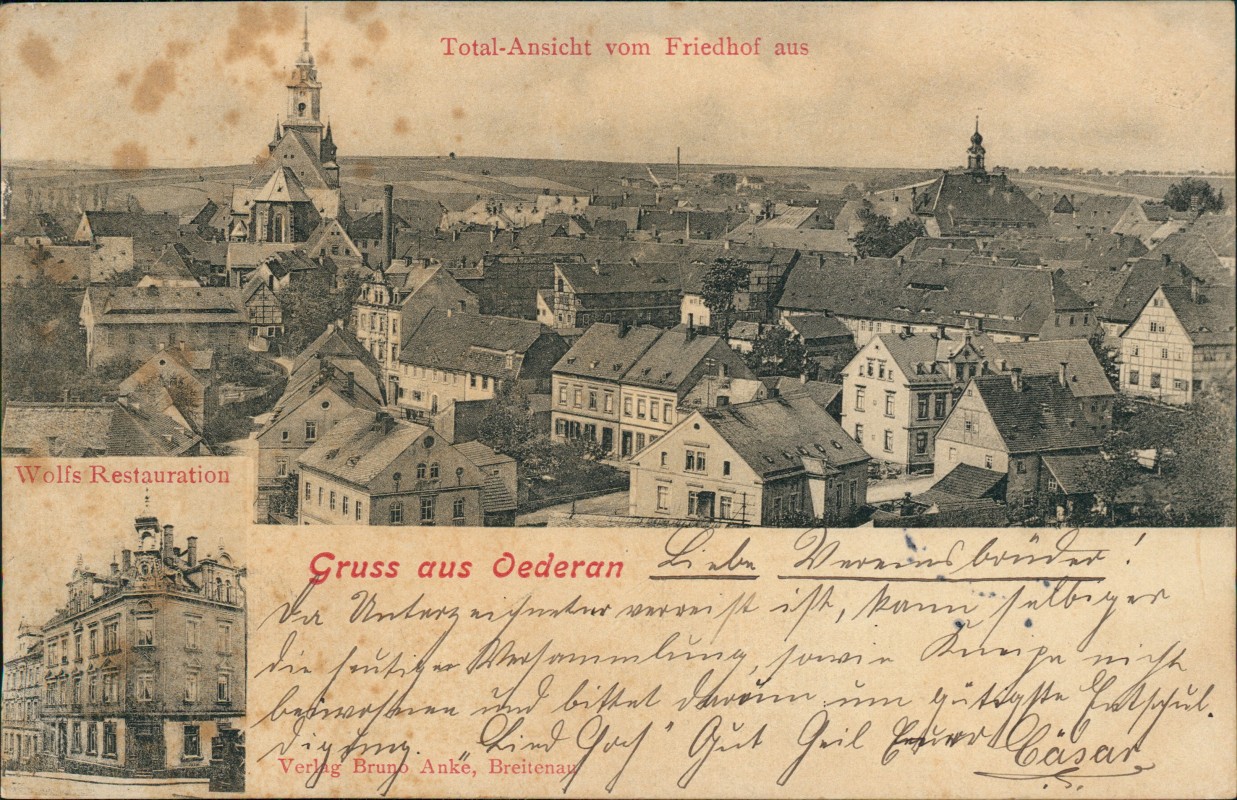 Total-Ansicht vom Friedhof aus
Wolfs Restauration
Gruss aus Oederan
Liebe Vereinsbrüder!
Da Unterzeichneter verreist ist, kann selbiger
die heutige Versammlung, sowie Kneipe nicht
beiwohnen und bittet darum um gütigste Entschul-
digung. „Lied Hoch" Gut Heil Euer Cäsar
Verlag Bruno Anke, Breitenau